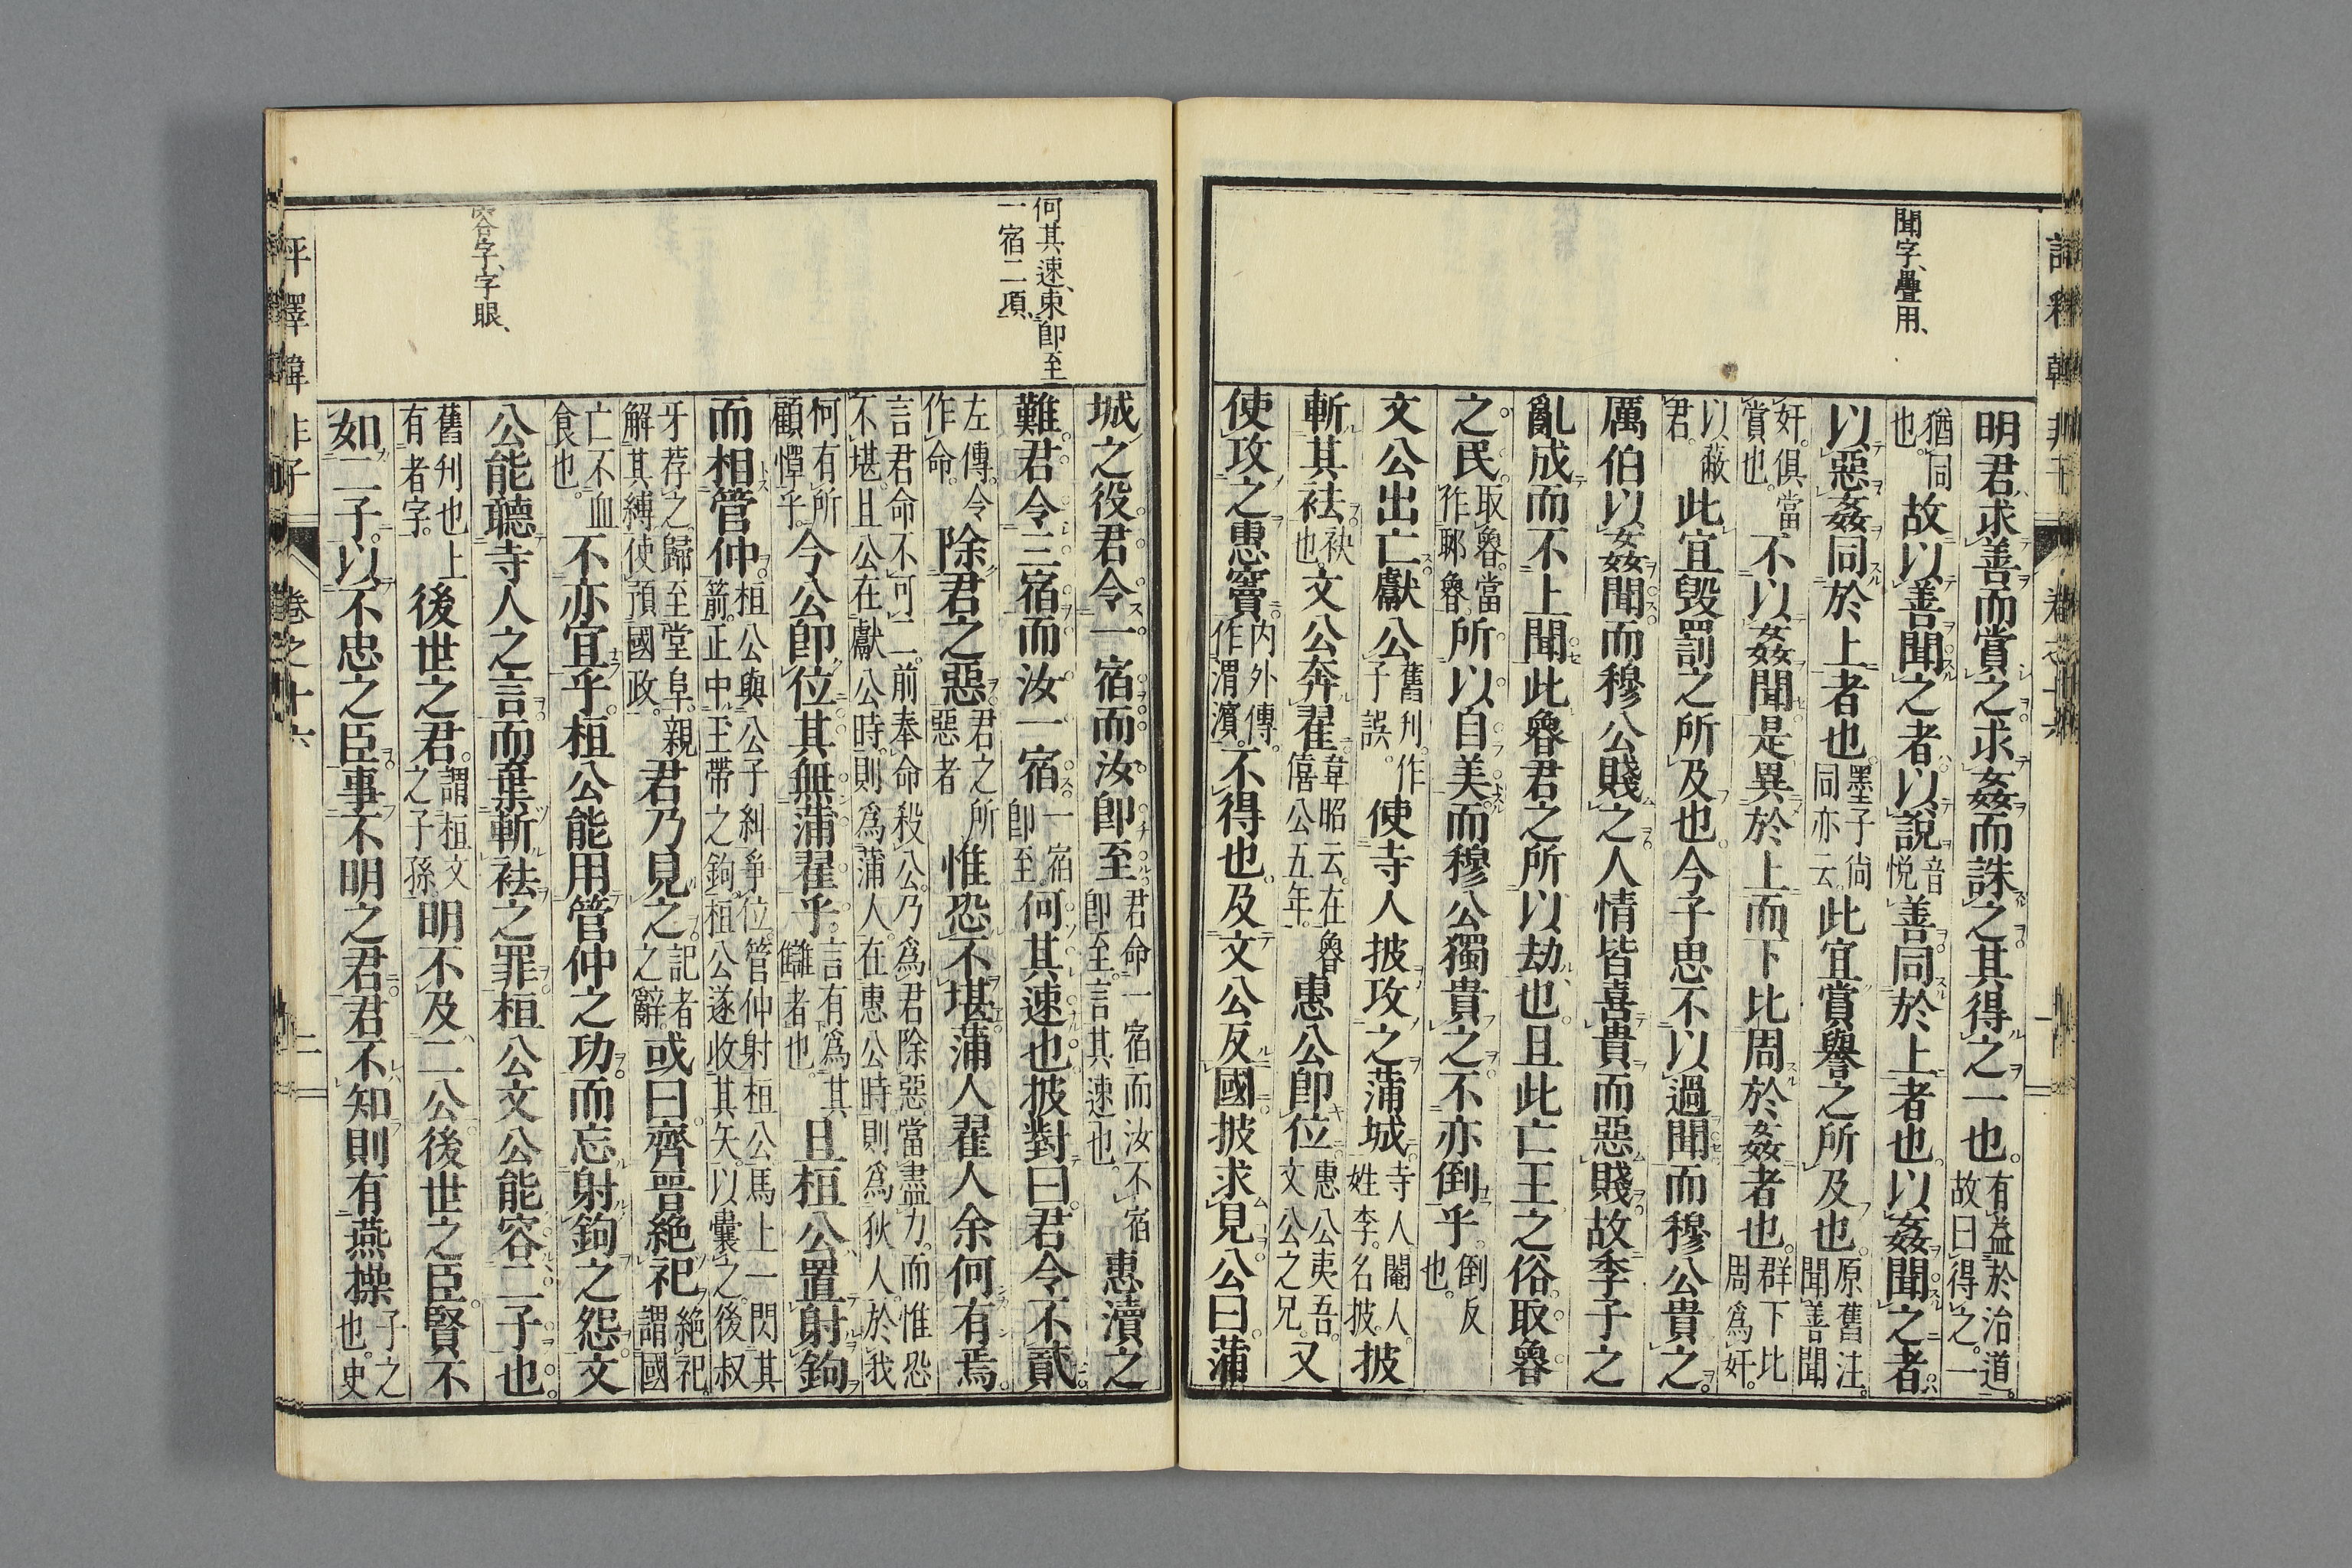 聞字、疊用、
明君求善而賞之求姦而誅之其得之一也有益於治道。故曰得之。一
猶同也。故以善聞之者以說音悅善同於上者也以姦聞之者
以惡姦同於上者也墨子尚同亦云此宜賞譽之所及也原舊注。聞善聞
奸。俱當賞也。不以姦聞是異於上而下比周於姦者也群下比周爲奸。
以蔽君。此宜毀罰之所及也今子思不以過聞而穆公貴之
厲伯以姦聞而穆公賤之人情皆喜貴而惡賤故季子之
亂成而不上聞此魯君之所以劫也且此亡王之俗取魯
之民取魯。當作郰魯。所以自美而穆公獨貴之不亦倒乎。倒反也。
文公出亡獻公舊刋。作子誤。使寺人披攻之蒲城寺人閹人。姓李。名披。披
斬其袪袂也文公奔翟韋昭云。在魯僖公五年。惠公卽位惠公夷吾。文公之兄。又
使攻之惠竇內外傳。作渭濱。不得也及文公反國披求見公曰蒲
何其速、東卽至一宿二項、
城之役君令一宿而汝卽至君命一宿而汝不宿卽至。言其速也。惠瀆之
難。君令三宿而汝一宿一宿卽至何其速也披對曰。君令不貳
左傳。令作命。除君之惡君之所惡者惟恐不堪蒲人翟人余何有焉
言君命不可二。前奉命殺公。乃爲君除惡當盡力。而惟恐不堪。且公在獻公時。則爲蒲人。在惠公時則爲狄人。於我
何有所顧憚乎。今公卽位其無蒲翟乎。言有爲其讎者也。且桓公置射鉤
而相管仲桓公與公子糾爭位。管仲射桓公。馬上一閃其箭。正中王帶之鉤。桓公遂收其矢。以囊之。後叔
牙荐之。歸至堂阜。親解其縛使預國政。君乃見之。記者之辭。或曰齊晉絶祀絶祀。謂國
亡不血食也。不亦宜乎桓公能用管仲之功而忘射鉤之怨文
公能聽寺人之言而棄斬袪之罪桓公文公能容二子也
舊刋也上有者字。後世之君。謂桓文之子孫明不及二公後世之臣賢不
如二子。以不忠之臣事不明之君君不知則有燕操子之也。史
容字、字眼、
卷之十六
二